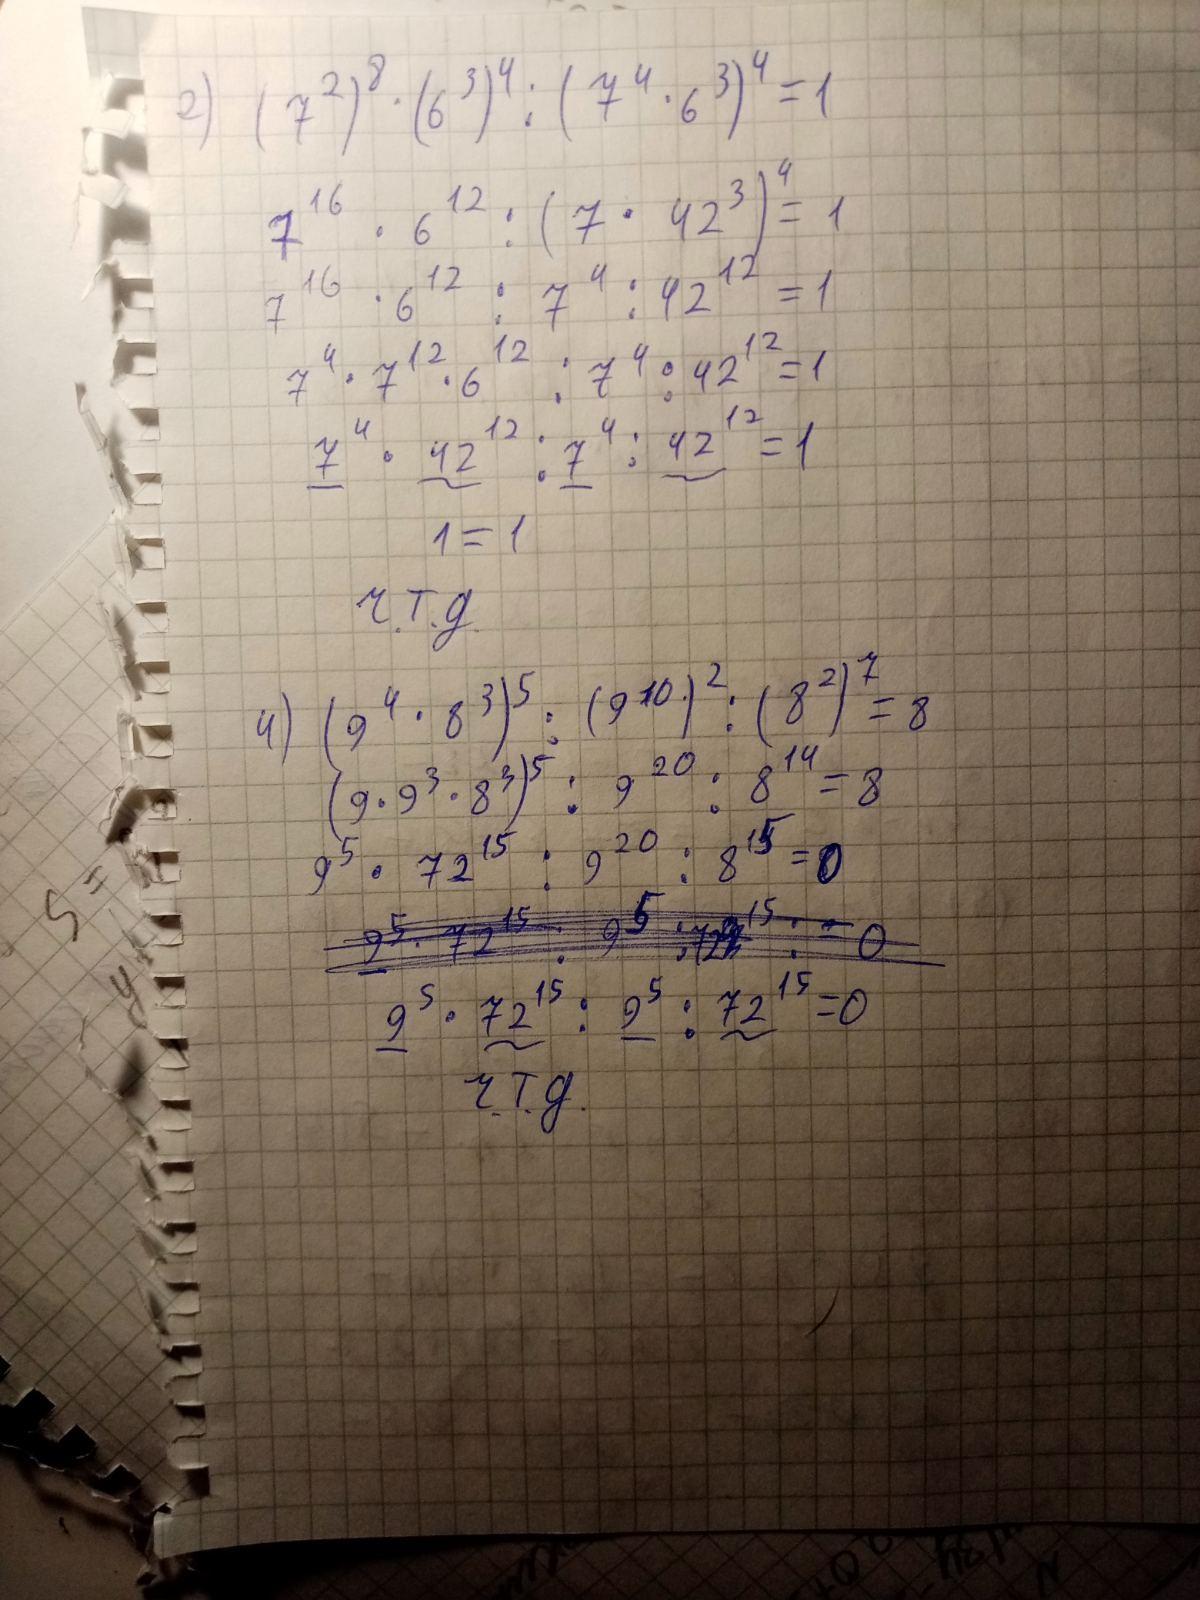 2) (7²)⁸ · (6³)⁴ : (7⁴ · 6³)⁴ = 1
7¹⁶ · 6¹² : (7 · 42³)⁴ = 1
7¹⁶ · 6¹² : 7⁴ : 42¹² = 1
7⁴ · 7¹² · 6¹² : 7⁴ : 42¹² = 1
7⁴ · 42¹² : 7⁴ : 42¹² = 1
1 = 1
ч.т.д.
4) (9⁴ · 8³)⁵ : (9¹⁰)² : (8²)⁷ = 8
(9 · 9³ · 8³)⁵ : 9²⁰ : 8¹⁴ = 8
9⁵ · 72¹⁵ : 9²⁰ : 8¹⁵ = 0
9⁵ · 72¹⁵ : 9⁵ : 72¹⁵ : = 0
9⁵ · 72¹⁵ : 9⁵ : 72¹⁵ = 0
ч.т.д.
5 =